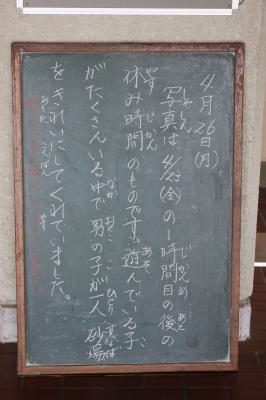 4月26日(月)
写真は、4/23(金)の1時間目の後の
休み時間のものです。遊んでいる子
がたくさんいる中で男の子が一人砂場
をきれいにしてくれていました。